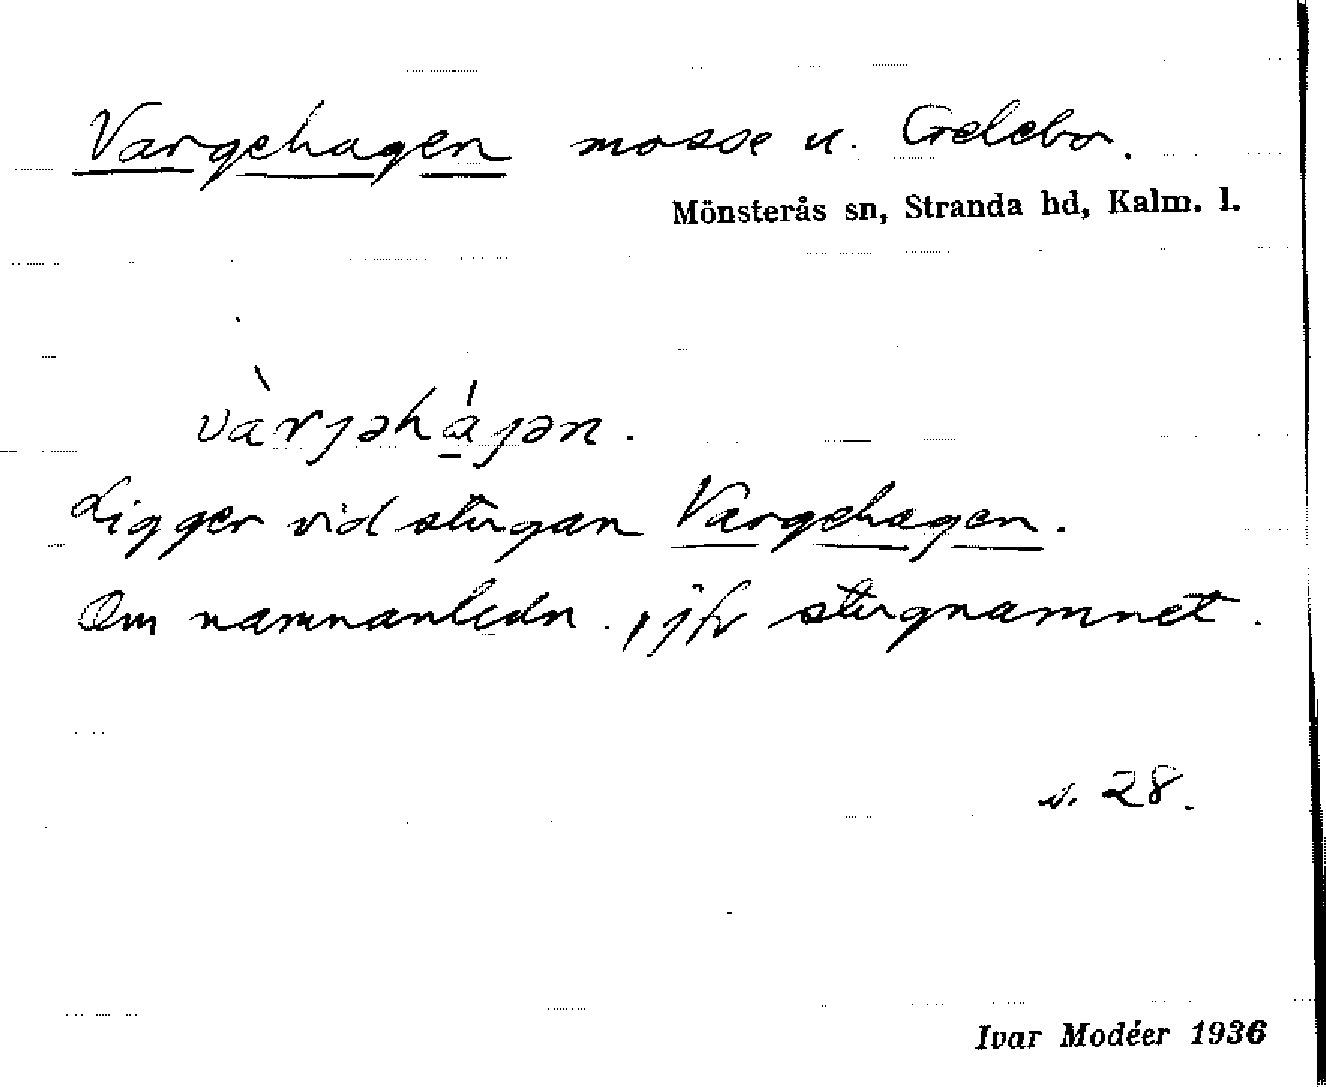 Vargehagen mosse u. Gelebo.
Mönsterås sn, Stranda hd, Kalm. l.
vàrjəhájən.
Ligger vid stugan Vargehagen.
Om namnanledn., jfr stugnamnet.
s. 28.
Ivar Modéer 1936